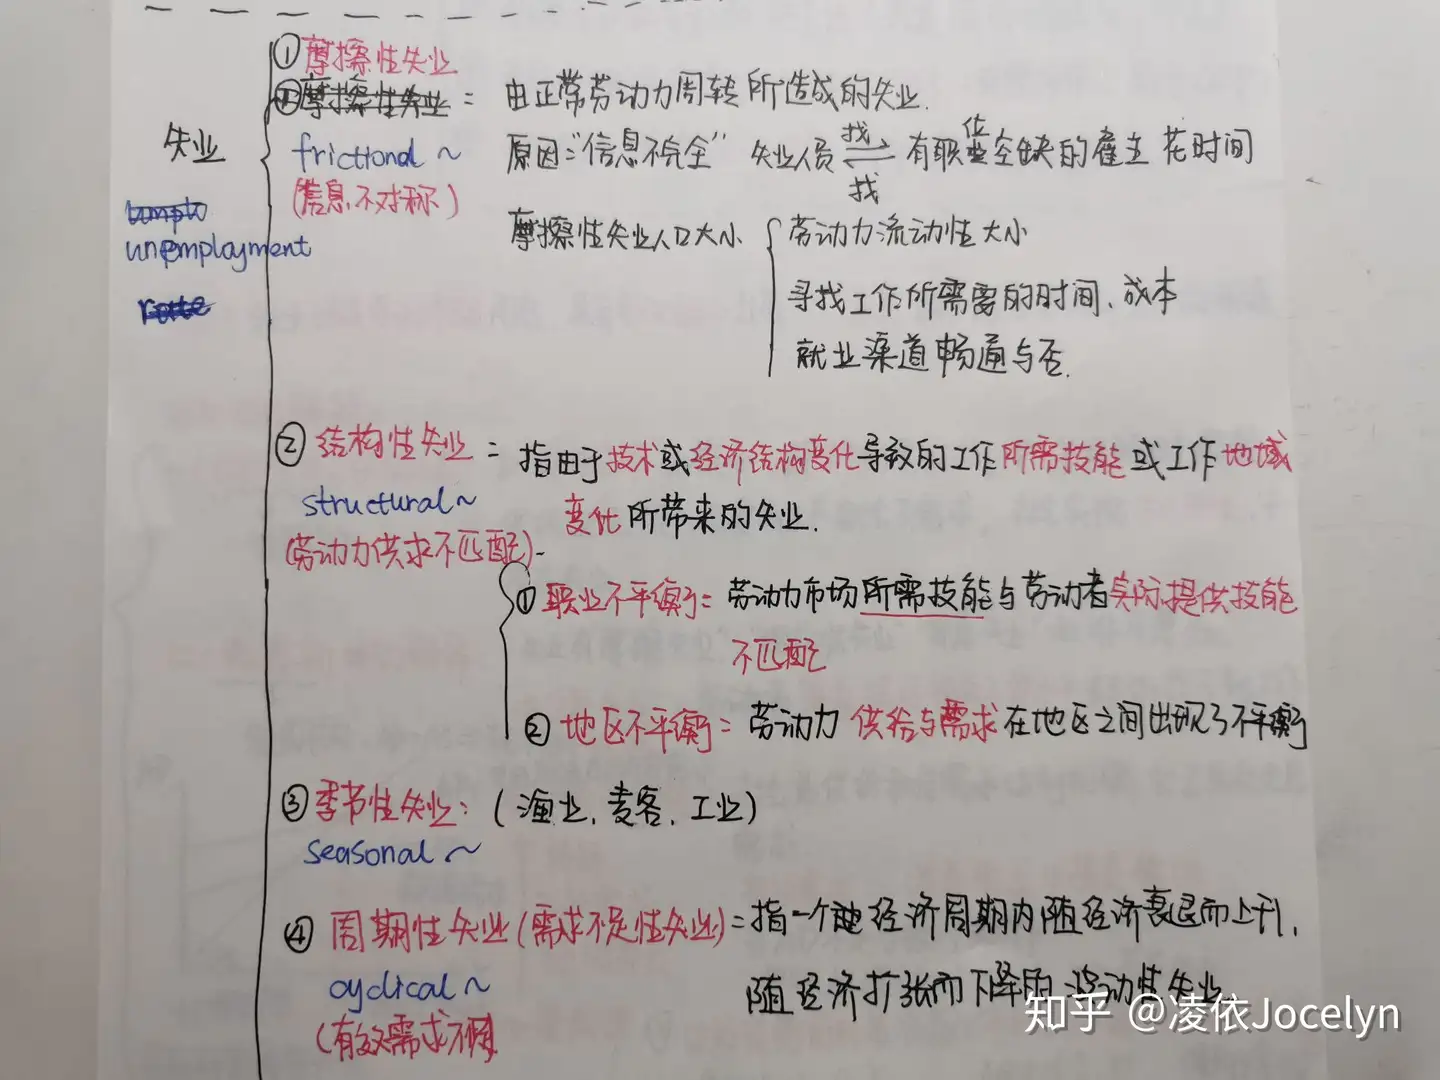 ①摩擦性失业
①摩擦性失业 = 由正常劳动力周转所造成的失业.
失业
frictional ~ 原因:"信息不完全" 失业人员 找 找 有职业位空缺的雇主 花时间
(信息不对称)
unemployment
摩擦性失业人口大小 劳动力流动性大小
寻找工作所需要的时间、成本
rate
就业渠道畅通与否.
②结构性失业 = 指由于技术或经济结构变化导致的工作所需技能或工作地域
structural~ 变化所带来的失业.
(劳动力供求不匹配).
①职业不平衡:劳动力市场所需技能与劳动者实际提供技能
不匹配
②地区不平衡=劳动力供给与需求在地区之间出现了不平衡
③季节性失业:(渔业、麦客、工业)
seasonal ~
④周期性失业(需求不足性失业)=指一个经济周期内随经济衰退而上升,
cyclical ~ 随经济扩张而下降的波动性失业.
(有效需求不足)
知乎 @凌依Jocelyn